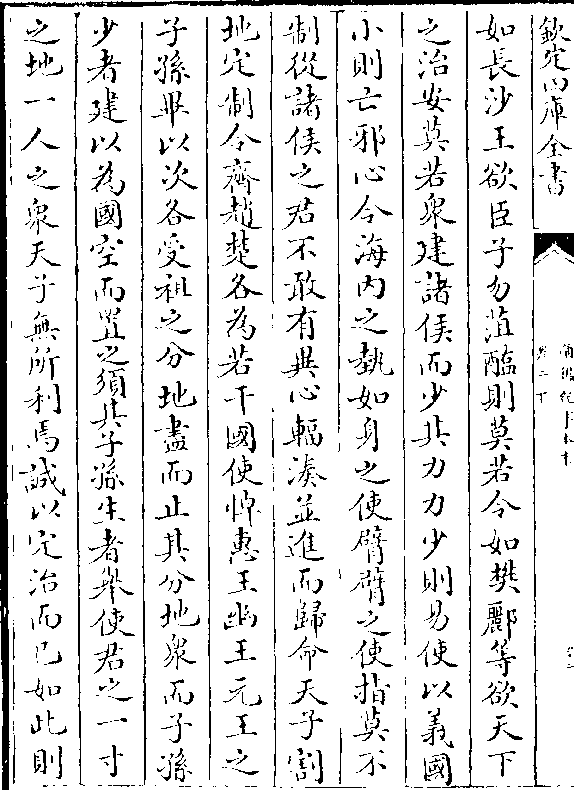 欽定四庫全書
如長沙王欲臣子勿葅醢則莫若令如樊酈等欲天下
之治安莫若衆建諸侯而少其力力少則易使以義國
小則亡邪心令海内之埶如身之使臂臂之使指莫不
制從諸侯之君不敢有異心輻湊並進而歸命天子割
地定制令齊趙楚各為若干國使悼惠王幽王元王之
子孫畢以次各受祖之分地盡而止其分地衆而子孫
少者建以為國空而置之須其子孫生者舉使君之一寸
之地一人之衆天子無所利焉誠以定治而已如此則